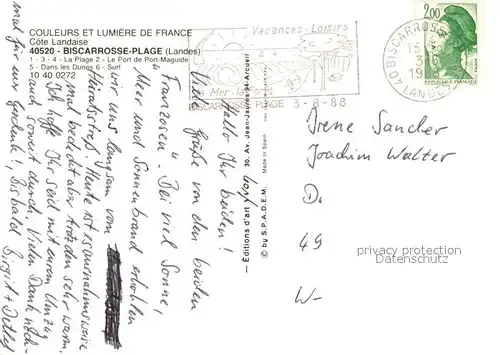 COULEURS ET LUMIÈRE DE FRANCE
Côte Landaise
40520 - BISCARROSSE-PLAGE (Landes)
1 - 3 - 4 - La Plage 2 - Le Port de Port-Maguide
5 - Dans les Dunes 6 - Surf
10 40 0272
Vacances-Loisirs
La Mer-la Forêt
BISCARROSSE PLAGE 3-8-88
40 BISCARROSSE
LANDES
2,00
Hallo Ihr beiden!
Viele Grüße von den beiden
"Franzosen". Bei viel Sonne,
Meer und Sonnenbrand erholen
wir uns langsam vom
Heiratsstreß. Heute ist es ausnahmsweise
mal bedeckt aber trotzdem sehr warm.
Ich hoffe Ihr seid mit eurem Umzug
auch soweit durch. Vielen Dank noch-
mal für eure Geduld! Bis bald Birgit + Detlef
Editions d'art yvon 30, Av. Jean-Jaurès-94-Arcueil
© by S.P.A.D.E.M. Made in Spain
Irene Sander
Joachim Walter
D.
49
W-
privacy protection
Datenschutz